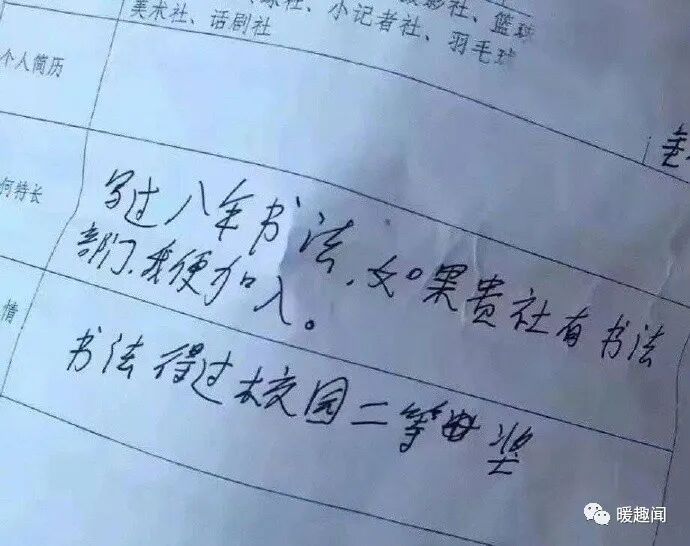 影社、篮球
小记者社、羽毛球
美术社、话剧社
个人简历
何特长
写过八年书法，如果贵社有书法
部门，我便加入。
情
书法得过校园二等奖
暖趣闻